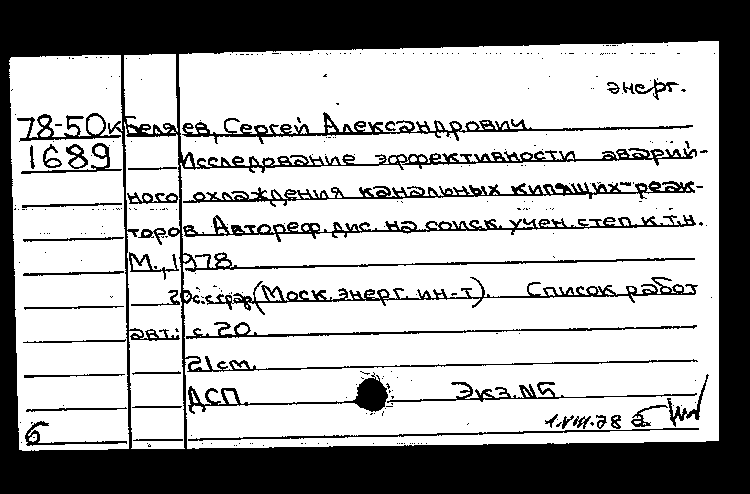 энерг.
78-50к Беляев, Сергей Александрович.
1689 Исследование эффективности аварий-
ного охлаждения канальных кипящих реак-
торов. Автореф. дис. на соиск. учен. степ. к.т.н.
М., 1978.
20 с. с граф. (Моск. энерг. ин-т). Список работ
авт.: с. 20.
21 см.
ДСП. Экз. №5.
1.VIII.78
б